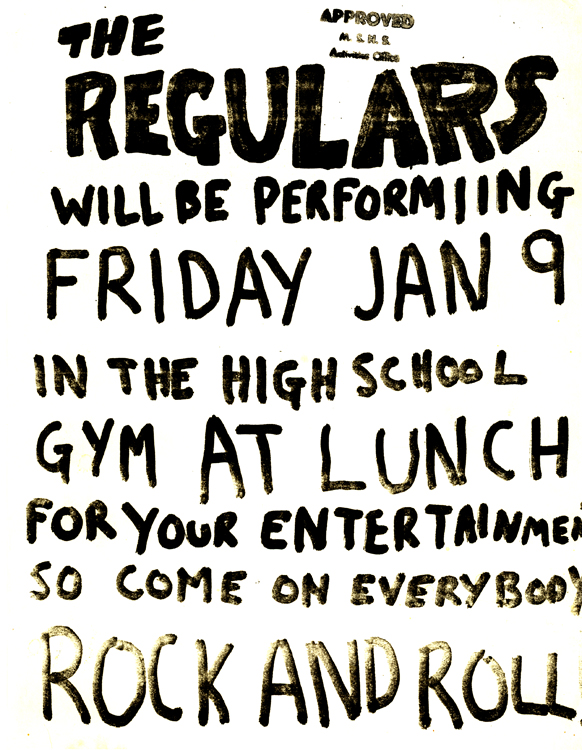 THE
APPROVED
M. S. H. S.
Activities Office
REGULARS
WILL BE PERFORMIING
FRIDAY JAN 9
IN THE HIGH SCHOOL
GYM AT LUNCH
FOR YOUR ENTERTAINMEN
SO COME ON EVERYBODY
ROCK AND ROLL!